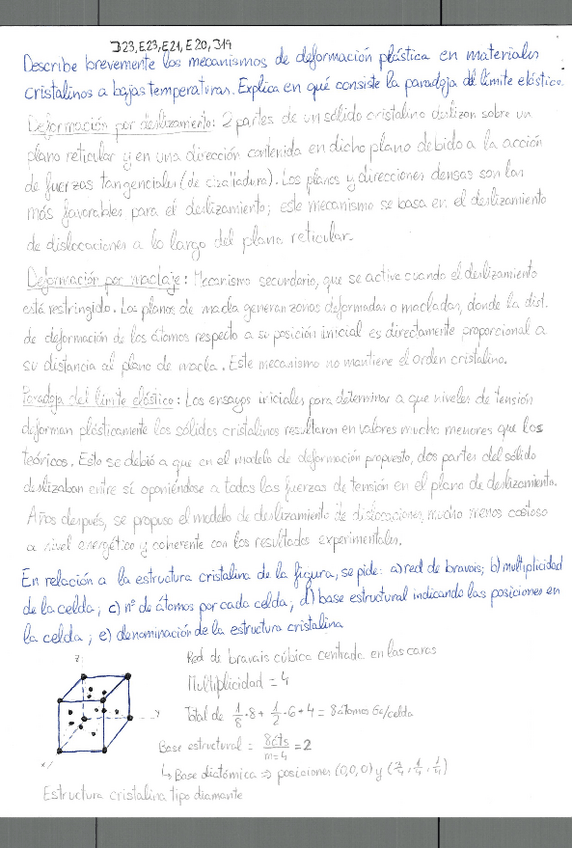 J23, E23, E21, E20, J19
Describe brevemente los mecanismos de deformación plástica en materiales
cristalinos a bajas temperaturas. Explica en qué consiste la paradoja del límite elástico.
Deformación por deslizamiento: 2 partes de un sólido cristalino deslizan sobre un
plano reticular y en una dirección contenida en dicho plano debido a la acción
de fuerzas tangenciales (de cizalladura). Los planos y direcciones densas son las
más favorables para el deslizamiento; este mecanismo se basa en el deslizamiento
de dislocaciones a lo largo del plano reticular.
Deformación por maclaje: Mecanismo secundario, que se activa cuando el deslizamiento
está restringido. Los planos de macla generan zonas deformadas o macladas, donde la dist.
de deformación de los átomos respecto a su posición inicial es directamente proporcional a
su distancia al plano de macla. Este mecanismo no mantiene el orden cristalino.
Paradoja del límite elástico: Los ensayos iniciales para determinar a que niveles de tensión
deforman plásticamente los sólidos cristalinos resultaron en valores mucho menores que los
teóricos. Esto se debió a que en el modelo de deformación propuesto, dos partes del sólido
deslizaban entre sí oponiéndose a todas las fuerzas de tensión en el plano de deslizamiento.
Años después, se propuso el modelo de deslizamiento de dislocaciones, mucho menos costoso
a nivel energético y coherente con los resultados experimentales.
En relación a la estructura cristalina de la figura, se pide: a) red de bravais; b) multiplicidad
de la celda; c) nº de átomos por cada celda; d) base estructural indicando las posiciones en
la celda; e) denominación de la estructura cristalina
Red de bravais cúbica centrada en las caras
Multiplicidad = 4
Total de 1/8·8 + 1/2·6 + 4 = 8 átomos /celda
Base estructural = 8áts/m=4 = 2
↳ Base diatómica ⇒ posiciones (0,0,0) y (1/4, 1/4, 1/4)
Estructura cristalina tipo diamante